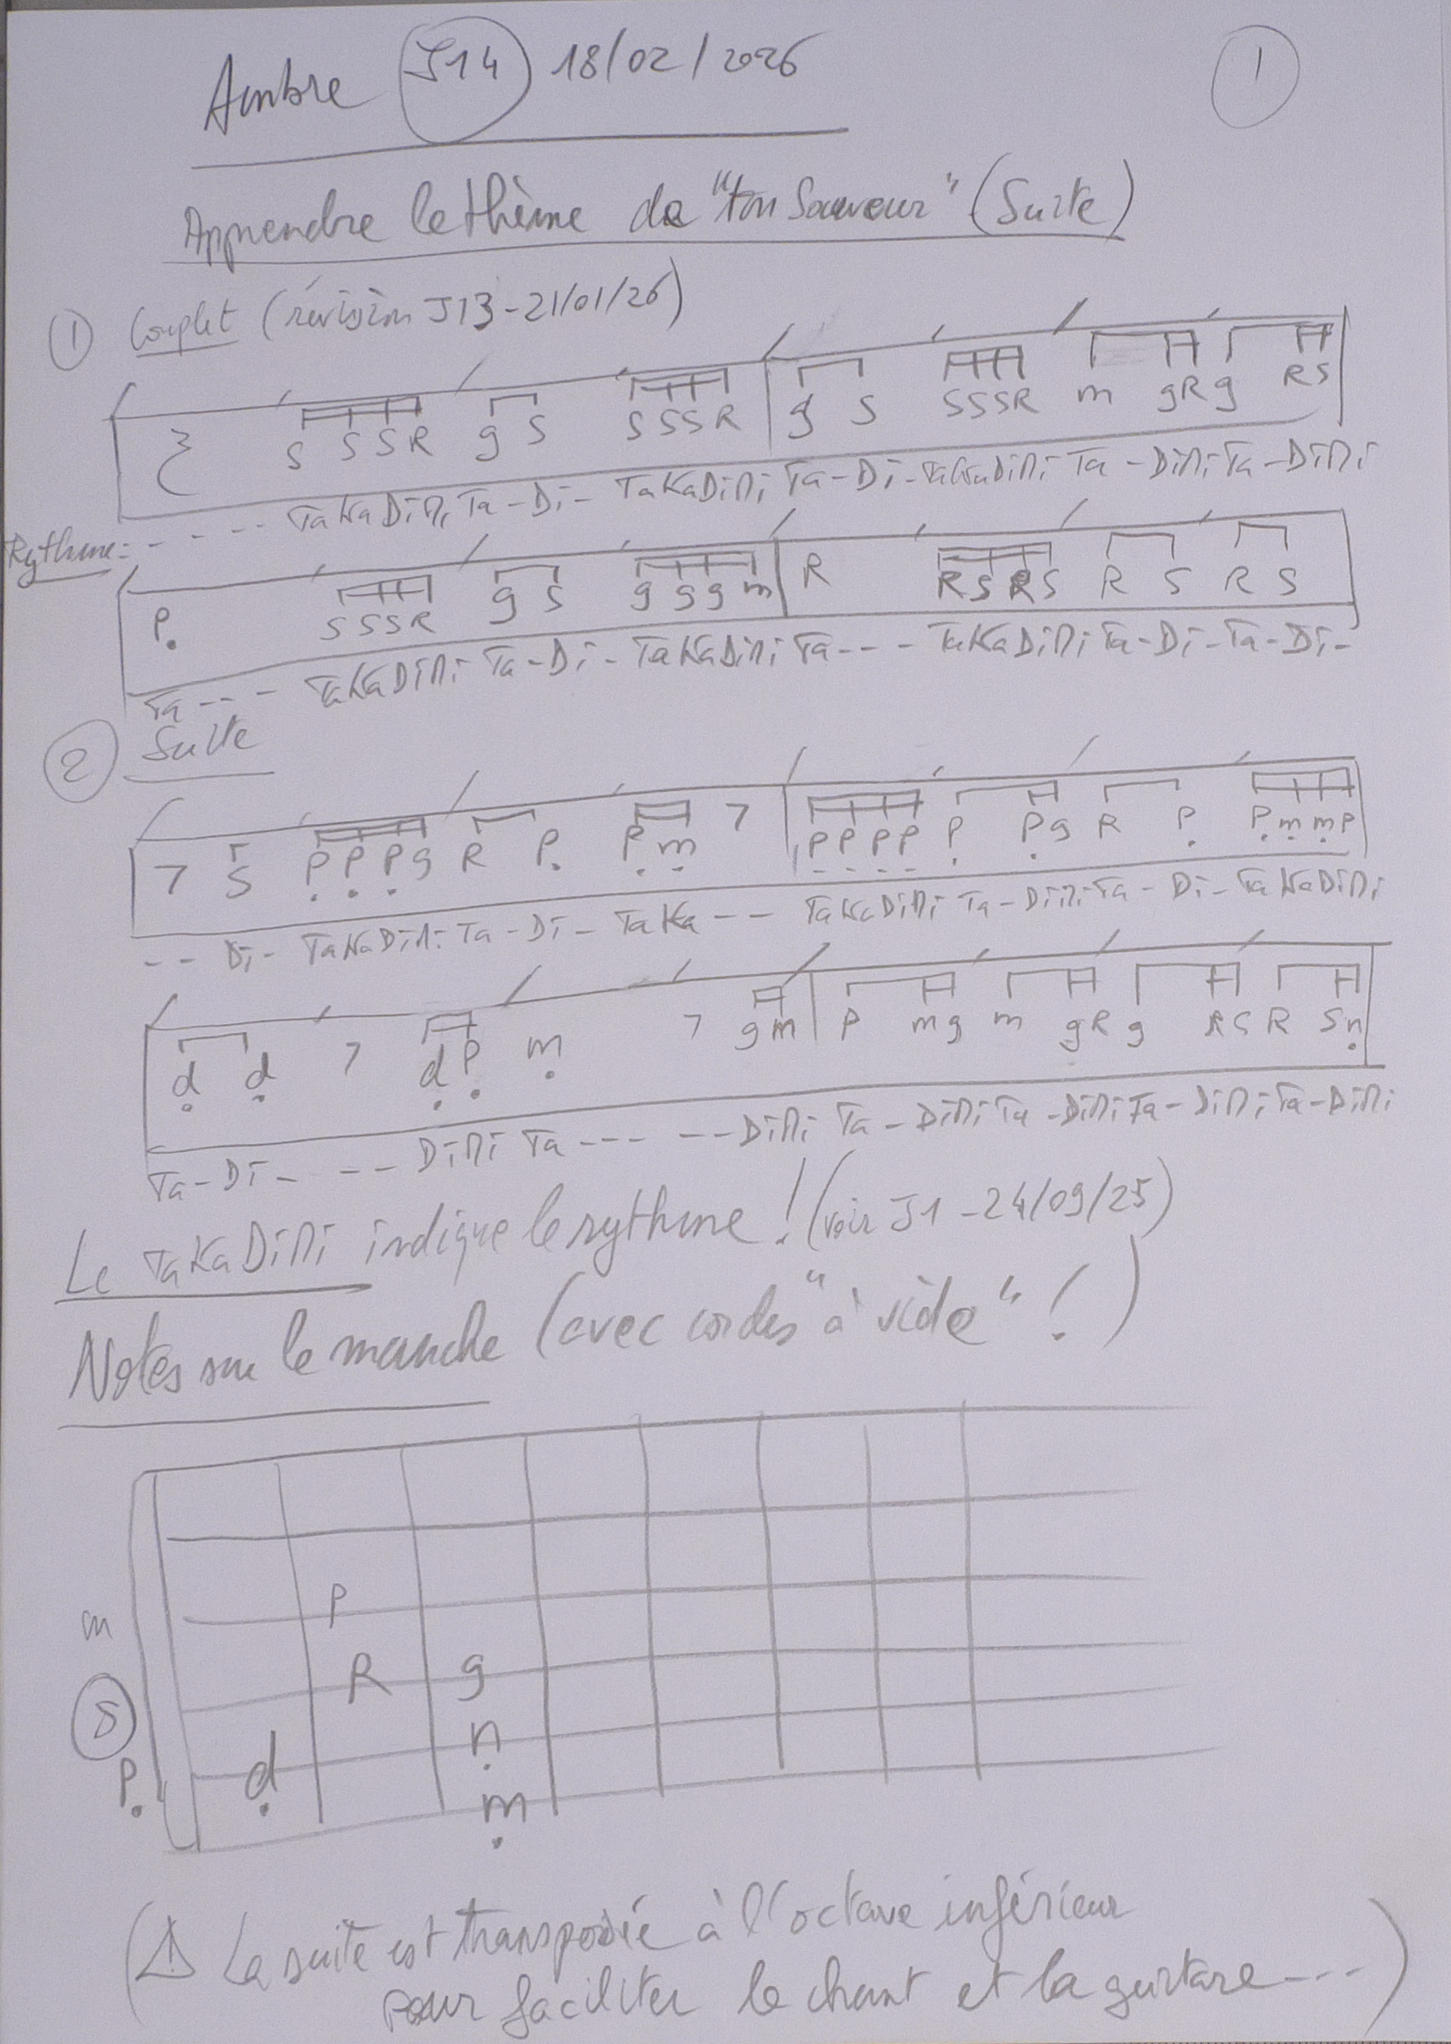 Ambre J14 18/02/2026 1
Apprendre le thème de "ton Sauveur" (Suite)
① Couplet (révision J13 - 21/01/26)
S S S R g S S S S R g S S S S R m g R g R S
Rythme: - - - - TaKaDiMi Ta - Di - TaKaDiMi Ta - Di - TaKaDiMi Ta - DiMi Ta - DiMi
P S S S R g S g g g m R R S R S R S R S
Ta - - - TaKaDiMi Ta - Di - TaKaDiMi Ta - - - TaKaDiMi Ta - Di - Ta - Di -
② Suite
7 S P P P g R P P m 7 P P P P P P g R P P m m P
- - Di - TaKaDiMi Ta - Di - TaKa - - TaKaDiMi Ta - DiMi Ta - Di - TaKaDiMi
d d 7 d P m 7 g m P m g m g R g R S R S n
Ta - Di - - - DiMi Ta - - - - - DiMi Ta - DiMi Ta - DiMi Ta - DiMi Ta - DiMi
Le TaKaDiMi indique le rythme ! (voir J1 - 24/09/25)
Notes sur le manche (avec cordes "à vide" !)
P
m
R g
S
n
P d
m
(⚠ La suite est transposée à l'octave inférieur
pour faciliter le chant et la guitare ---)